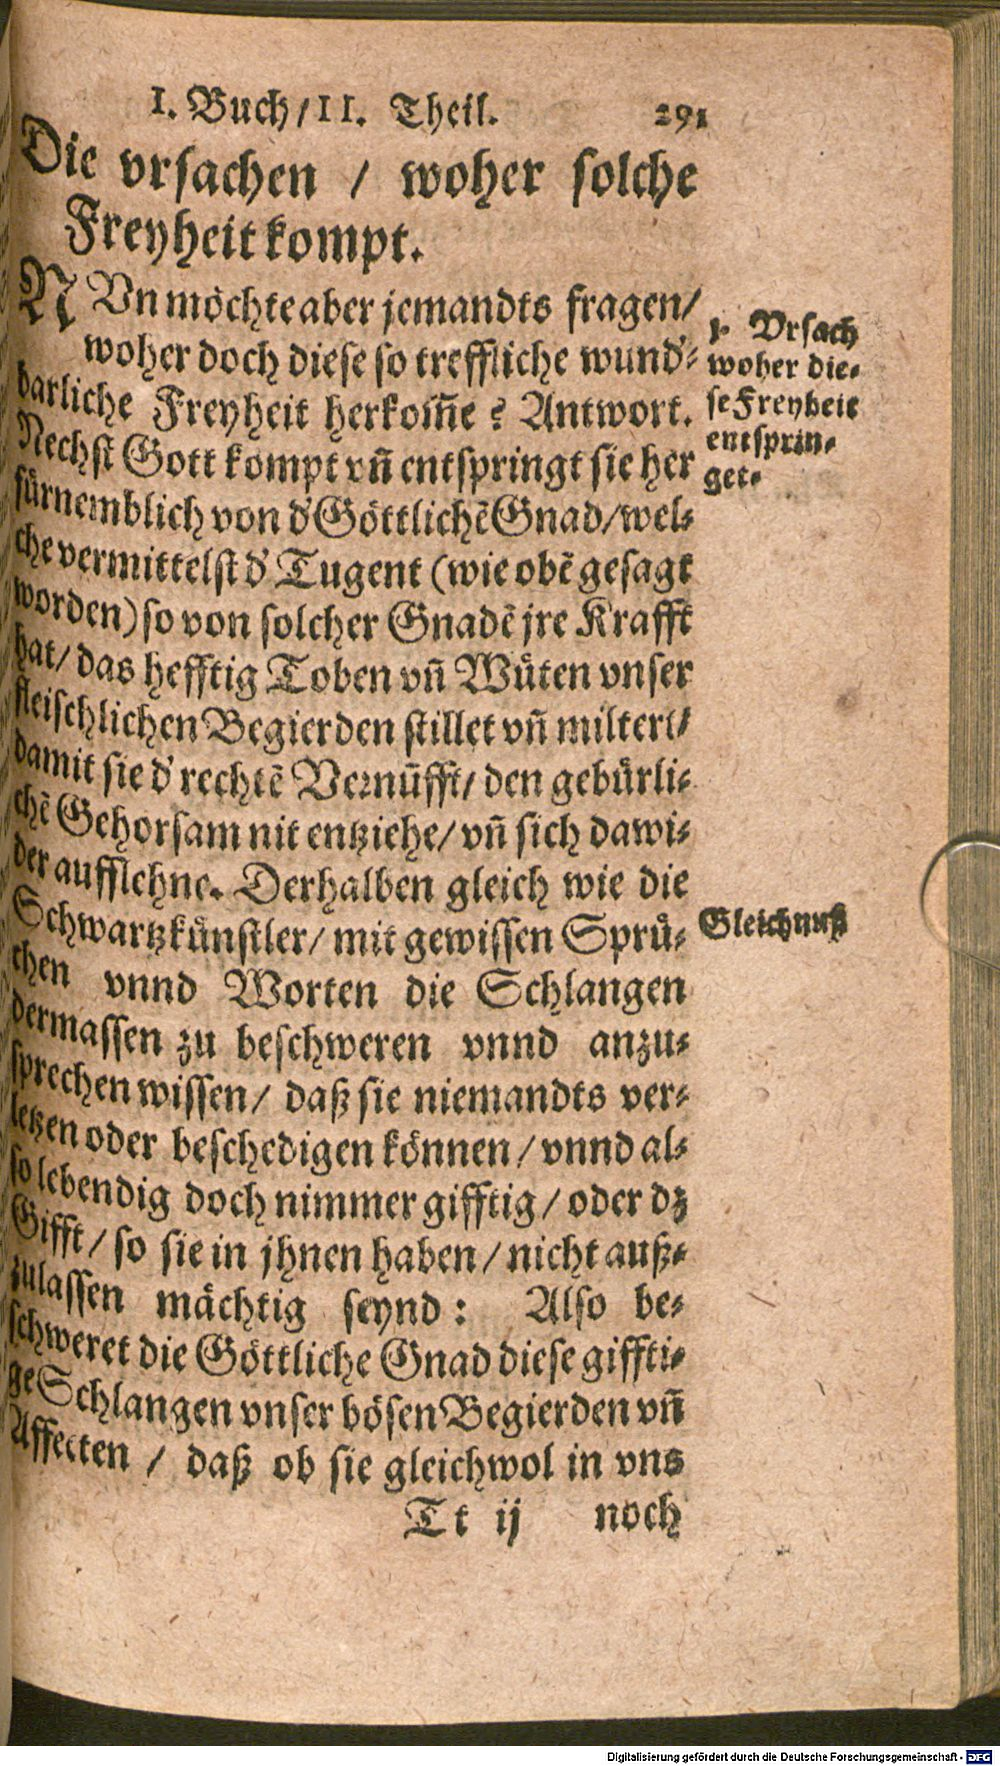 I. Buch/II. Theil. 291
Die vrsachen / woher solche
Freyheit kompt.
NVn möchte aber jemandts fragen/
woher doch diese so treffliche wund'-
barliche Freyheit herkom̃e? Antwort.
Nechst Gott kompt vñ entspringt sie her
fürnemblich von d' Göttlichẽ Gnad/wel-
che vermittelst d' Tugent (wie obẽ gesagt
worden) so von solcher Gnadẽ jre Krafft
hat/ das hefftig Toben vñ Wüten vnser
fleischlichen Begierden stillet vñ miltert/
damit sie d' rechtẽ Vernũfft/ den gebürli-
chẽ Gehorsam nit entziehe/ vñ sich dawi-
der aufflehne. Derhalben gleich wie die
Schwartzkünstler/ mit gewissen Sprü-
chen vnnd Worten die Schlangen
dermassen zu beschweren vnnd anzu-
sprechen wissen/ daß sie niemandts ver-
letzen oder beschedigen können/ vnnd al-
so lebendig doch nimmer gifftig/ oder dz
Gifft/ so sie in jhnen haben/ nicht auß-
zulassen mächtig seynd: Also be-
schweret die Göttliche Gnad diese giffti-
ge Schlangen vnser bösen Begierden vñ
Affecten / daß ob sie gleichwol in vns
Tt ij noch
1. Vrsach
woher die-
se Freyheit
entsprin-
get.
Gleichnuß
Digitalisierung gefördert durch die Deutsche Forschungsgemeinschaft - DFG